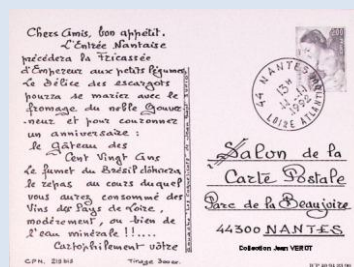 Chers Amis, bon appétit.
L'Entrée Nantaise
précédera la Fricassée
d'Empereur aux petits légumes
Le délice des escargots
pourra se marier avec le
fromage du noble Gouver
-neur et pour couronner
un anniversaire :
le Gâteau des
Cent Vingt Ans
Le fumet du Brésil clôturera
le repas au cours duquel
vous aurez consommé des
Vins des Pays de Loire,
modérément, ou bien de
l'eau minérale !!....
Cartophilement vôtre
C.P.N. 218 bis Tirage
2,00
44 NANTES
13H
LOIRE ATLANT
Salon de la
Carte Postale
Parc de la Beaujoire
44300 NANTES
Collection Jean VEROT